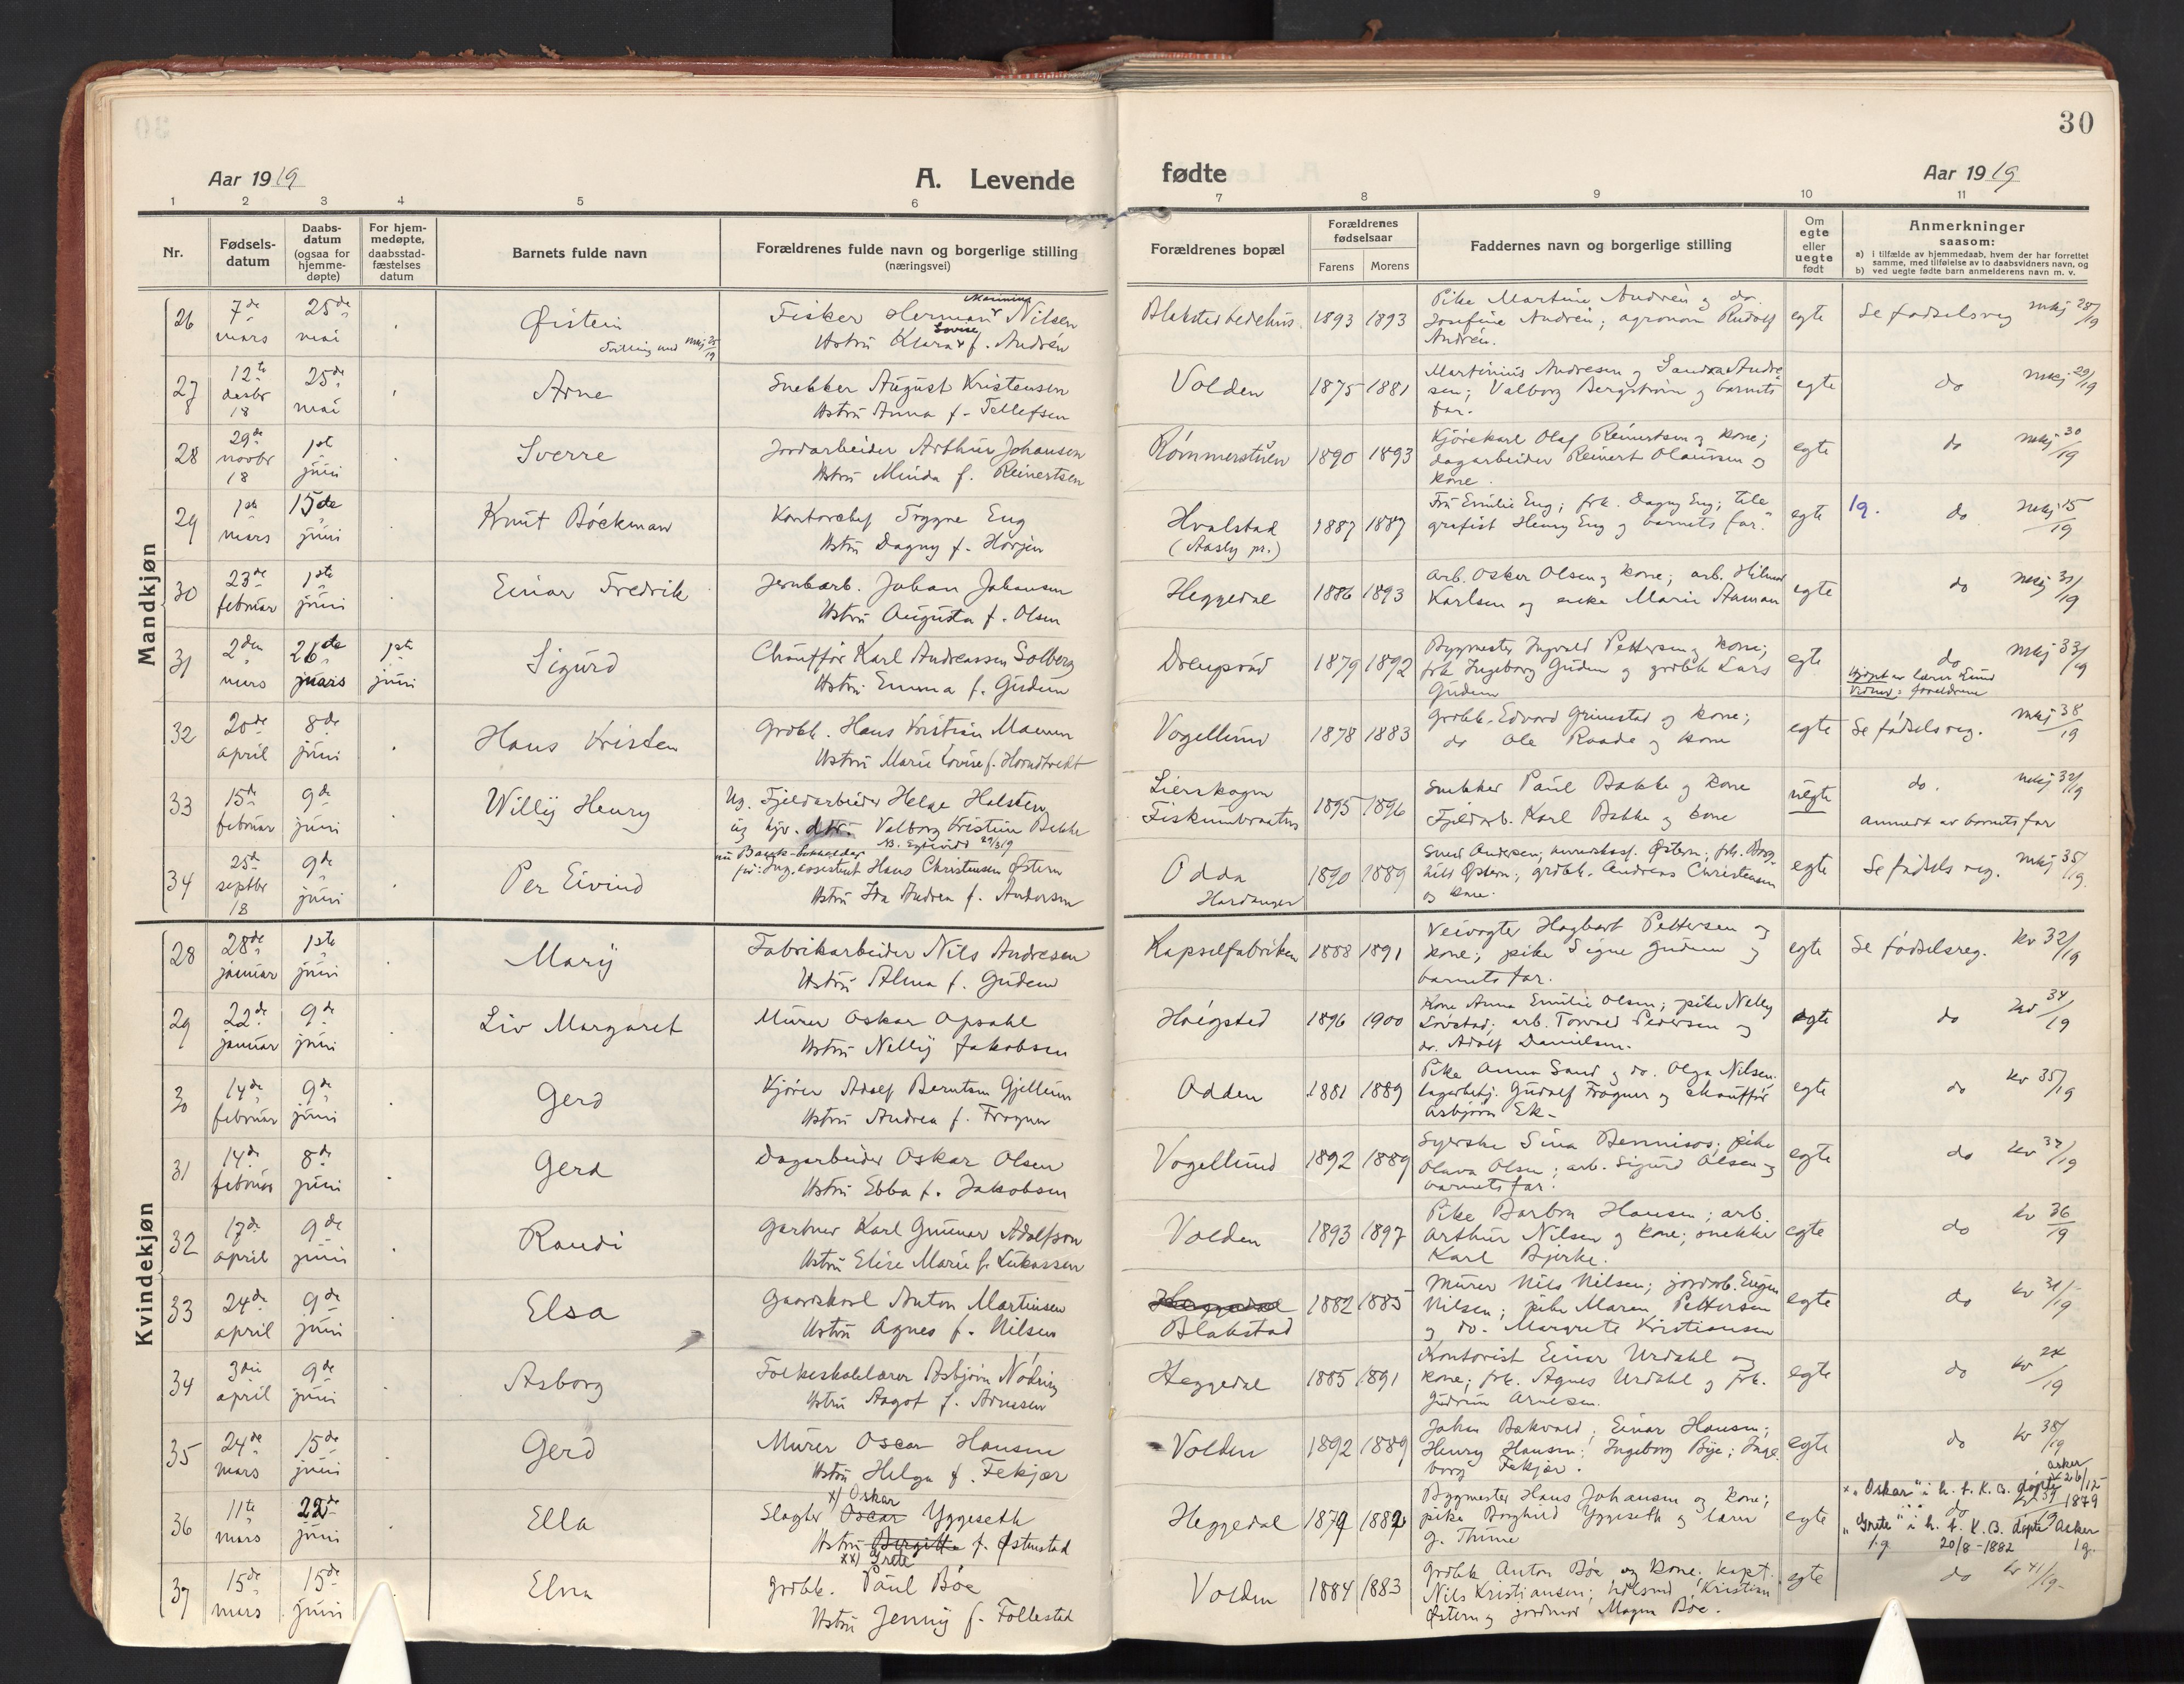 30
Aar 1919
A. Levende
fødte
Aar 1919
1 2 3 4 5 6 7 8 9 10 11
Nr.
Fødsels-datum
Daabs-datum (ogsaa for hjemme-døpte)
For hjem-medøpte, daabsstad-fæstelses datum
Barnets fulde navn
Forældrenes fulde navn og borgerlige stilling
(næringsvei)
Forældrenes bopæl
Forældrenes fødselsaar
Farens Morens
Faddernes navn og borgerlige stilling
Om egte eller uegte født
Anmerkninger
saasom:
a) i tilfælde av hjemmedaab, hvem der har forrettet samme, med tilføielse av to daabsvidners navn, og
b) ved uegte fødte barn anmelderens navn m. v.
Mandkjøn
26 7de mars 25de mai Øistein
Fisker Herman Nilsen
Hstru Klara f. Andrén
1893 1893
Pike Martine Andrén og do.
Josefine Andrén; agronom Rudolf
Andrén.
egte Se fødselsreg mkj 28/19
27 12te desbr 18 25de mai Arne
Snekker August Kristensen
Hstru Anna f. Tellefsen
Volden 1875 1881
Martinius Andresen og Sandra Andre-
sen; Valborg Bergstrøm og barnets
far.
egte do mkj 29/19
28 29de novbr 18 1ste juni Sverre
Jordarbeider Arthur Johansen
Hstru Minda f. Reinertsen
1890 1893
Kjørekarl Olaf Reinertsen og kone;
dagarbeider Reinert Olaussen og
kone.
egte do mkj 30/19
29 1ste mars 15de juni Knut Böckman
Kontorchef Trygve Eng
Hstru Dagny f. Horjen
Hvalstad
(Aasly pr.)
1887 1887
Fru Emilie Eng; frk. Dagny Eng; tele
grafist Henry Eng og barnets far.
egte 19. do mkj 15/19
30 23de februar 1ste juni Einar Fredrik
Jernbarb. Johan Johansen
Hstru Augusta f. Olsen
Heggedal 1886 1893
arb. Oskar Olsen og kone; arb. Hilmar
Karlsen og enke Marie Aaman
egte do mkj 31/19
31 2den mars 26de mars 1ste juni Sigurd
Chauffør Karl Andreassen Solberg
Hstru Emma f. Gudem
Drengsrud 1879 1892
Bygmester Ingvald Pettersen og kone;
frk Ingeborg Gudem og grdbk Lars
Gudem
egte do mkj 33/19
Hjdøpt av lærer Lund
Vidner: forældrene
32 20de april 8de juni Hans Kristen
Grdbk. Hans Kristian Maanum
Hstru Marie Lovise f.
Vogellund 1878 1883
Grdbk. Edvard Grimstad og kone;
do Ole Raade og kone
egte Se fødselsreg. mkj 38/19
33 15de februar 9de juni Willy Henry
Ug. Fjeldarbeider Helge Halsten
ug kjv. Valborg Kristine Bakke
Lierskogen
1895 1896
Snekker Paul Bakke og kone
Fjeldarb. Karl Bakke og kone
uegte do. mkj 32/19
anmeldt av barnets far
34 25de septbr 18 9de juni Per Eivind
Ing. assistent Hans Christensen Østern
Hstru Ida Andrea f. Andersen
Odda
Hardanger
1890 1889
egte Se fødselsreg. mkj 35/19
Kvindekjøn
28 28de januar 1ste juni Mary
Fabrikarbeider Nils Andresen
Hstru Alma f. Gudem
Kapselfabriken 1888 1891
Veivogter Hagbart Pettersen og
kone; pike Signe Gudem og
barnets far.
egte Se fødselsreg. kv 32/19
29 22de januar 9de juni Liv Margaret
Murer Oskar Opsahl
Hstru Nelly Jakobsen
Høigsted 1896 1900
Kone Anna Emilie Olsen; pike Nelly
Løvstad; arb. Torvald Pedersen og
do. Adolf Danielsen.
egte do kv 34/19
30 14de februar 9de juni Gerd
Kjører Adolf Berntsen Gjellum
Hstru Andrea f. Frogner
Odden 1881 1889
Pike Anna Sand og do. Olga Nilsen.
lagerbetj. Gudolf Frogner og chauffør
Asbjørn Ek.
egte do kv 35/19
31 14de februar 8de juni Gerd
Dagarbeider Oskar Olsen
Hstru Ebba f. Jakobsen
Vogellund 1892 1889
Syerske Sina Bennisos; pike
Olava Olsen; arb. Sigurd Olsen og
barnets far.
egte do kv 37/19
32 17de april 9de juni Randi
Gartner Karl Gunnar Adolfson
Hstru Elise Marie f. Lukassen
Volden 1893 1897
Pike Barbra Hansen; arb.
Arthur Nilsen og kone; snekker
Karl Bjerke.
egte do kv 36/19
33 24de april 9de juni Elsa
Gaardskarl Anton Martinsen
Hstru Agnes f. Nilsen
Heggedal
Blakstad
1882 1885
Murer Nils Nilsen; jordarb. Eugen
Nilsen; pike Maren Pettersen
og do. Margrete Kristiansen
egte do kv 31/19
34 3die april 9de juni Asborg
Folkeskolelærer Asbjørn Nødring
Hstru Aagot f. Arnesen
Heggedal 1885 1891
Kontorist Einar Urdahl og
kone; frk. Agnes Urdahl og frk.
Gudrun Arnesen.
egte do kv 24/19
35 24de mars 15de juni Gerd
Murer Oscar Hansen
Hstru Helga f. Fekjær
Volden 1892 1889
Johan Bakvald; Einar Hansen;
Henry Hansen; Ingeborg Bye; Inge
borg Fekjær.
egte do kv 38/19
36 11te mars 22de juni Ella
x) Oskar
Slagter Oscar Yggeseth
Hstru Birgitte f. Østenstad
xx) Grete
Heggedal 1879 1882
Bygmester Hans Johansen og kone;
pike Borghild Yggeseth og lærer
G. Thune
egte do kv 39/19
x „Oskar" i h. t. K. B. døpte Asker 26/12 1879
„Grete" i h. t. K. B. døpte Asker
20/8-1882
37 15de mars 15de juni Elna
Grdbk. Paul Bøe
Hstru Jenny f. Follestad
Volden 1884 1883
Grdbk Anton Bøe og kone; kapt.
Nils Kristiansen; Kristian
Østern og jordmor Magna Bøe.
egte do kv 41/19